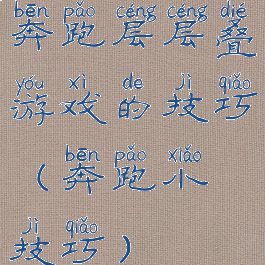 bēn pǎo céng céng dié
奔跑层层叠
yóu xì de jì qiǎo
游戏的技巧
bēn pǎo xiǎo
(奔跑小
jì qiǎo
技巧)